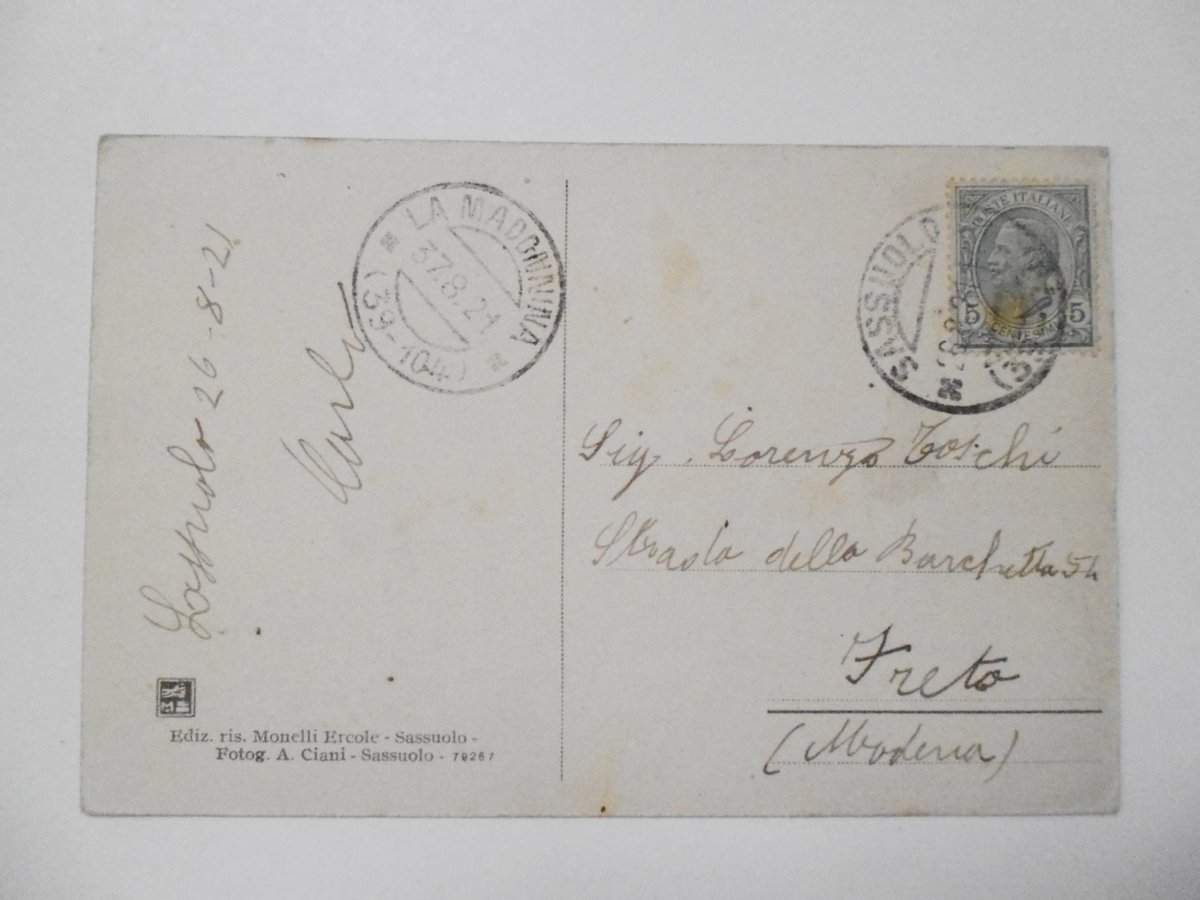 Sassuolo 26-8-21
Carlo
LA MADONNINA
37.8.21
(39-104)
Ediz. ris. Monelli Ercole - Sassuolo -
Fotog. A. Ciani - Sassuolo - 79267
POSTE ITALIANE
5 CENTESIMI 5
SASSUOLO
Sig. Lorenzo Toschi
Strada della Barchetta
Freto
(Modena)